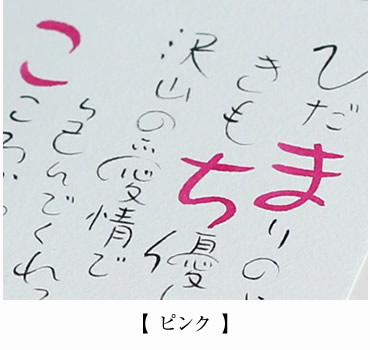 ひだまりの
きもち優
沢山の愛情で
んでくれ
ここ
【 ピンク 】